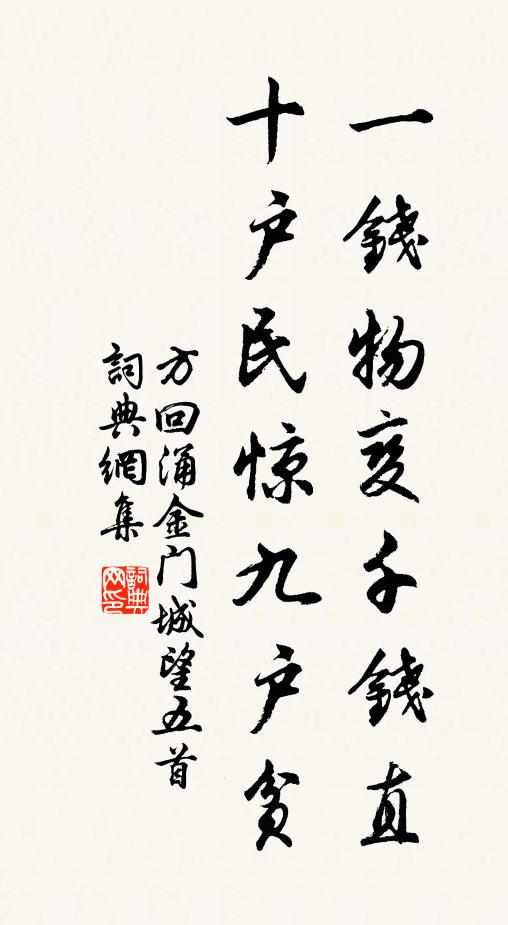 一錢物变千錢直
十户民惊九户貧
方回涌金门城望五首
詞典網集
詞典網印